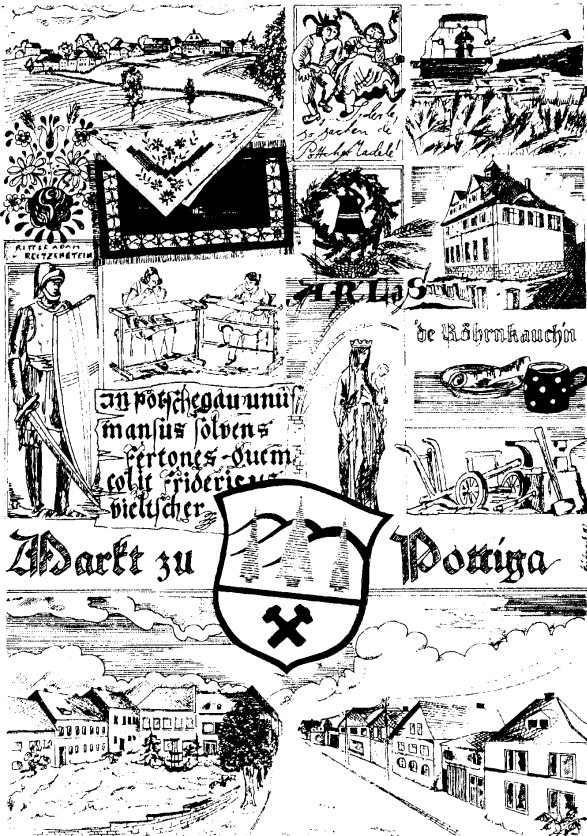 jderle,
so sachen de
Pöttcher Madele!
RITTER ADAM
v. REITZENSTEIN
ARLAS
'de Röhrnkauch'n
in potschegau unus
mansus solvens
fertones - Quem
colit fridericus
vieltscher
Markt zu Pottiga